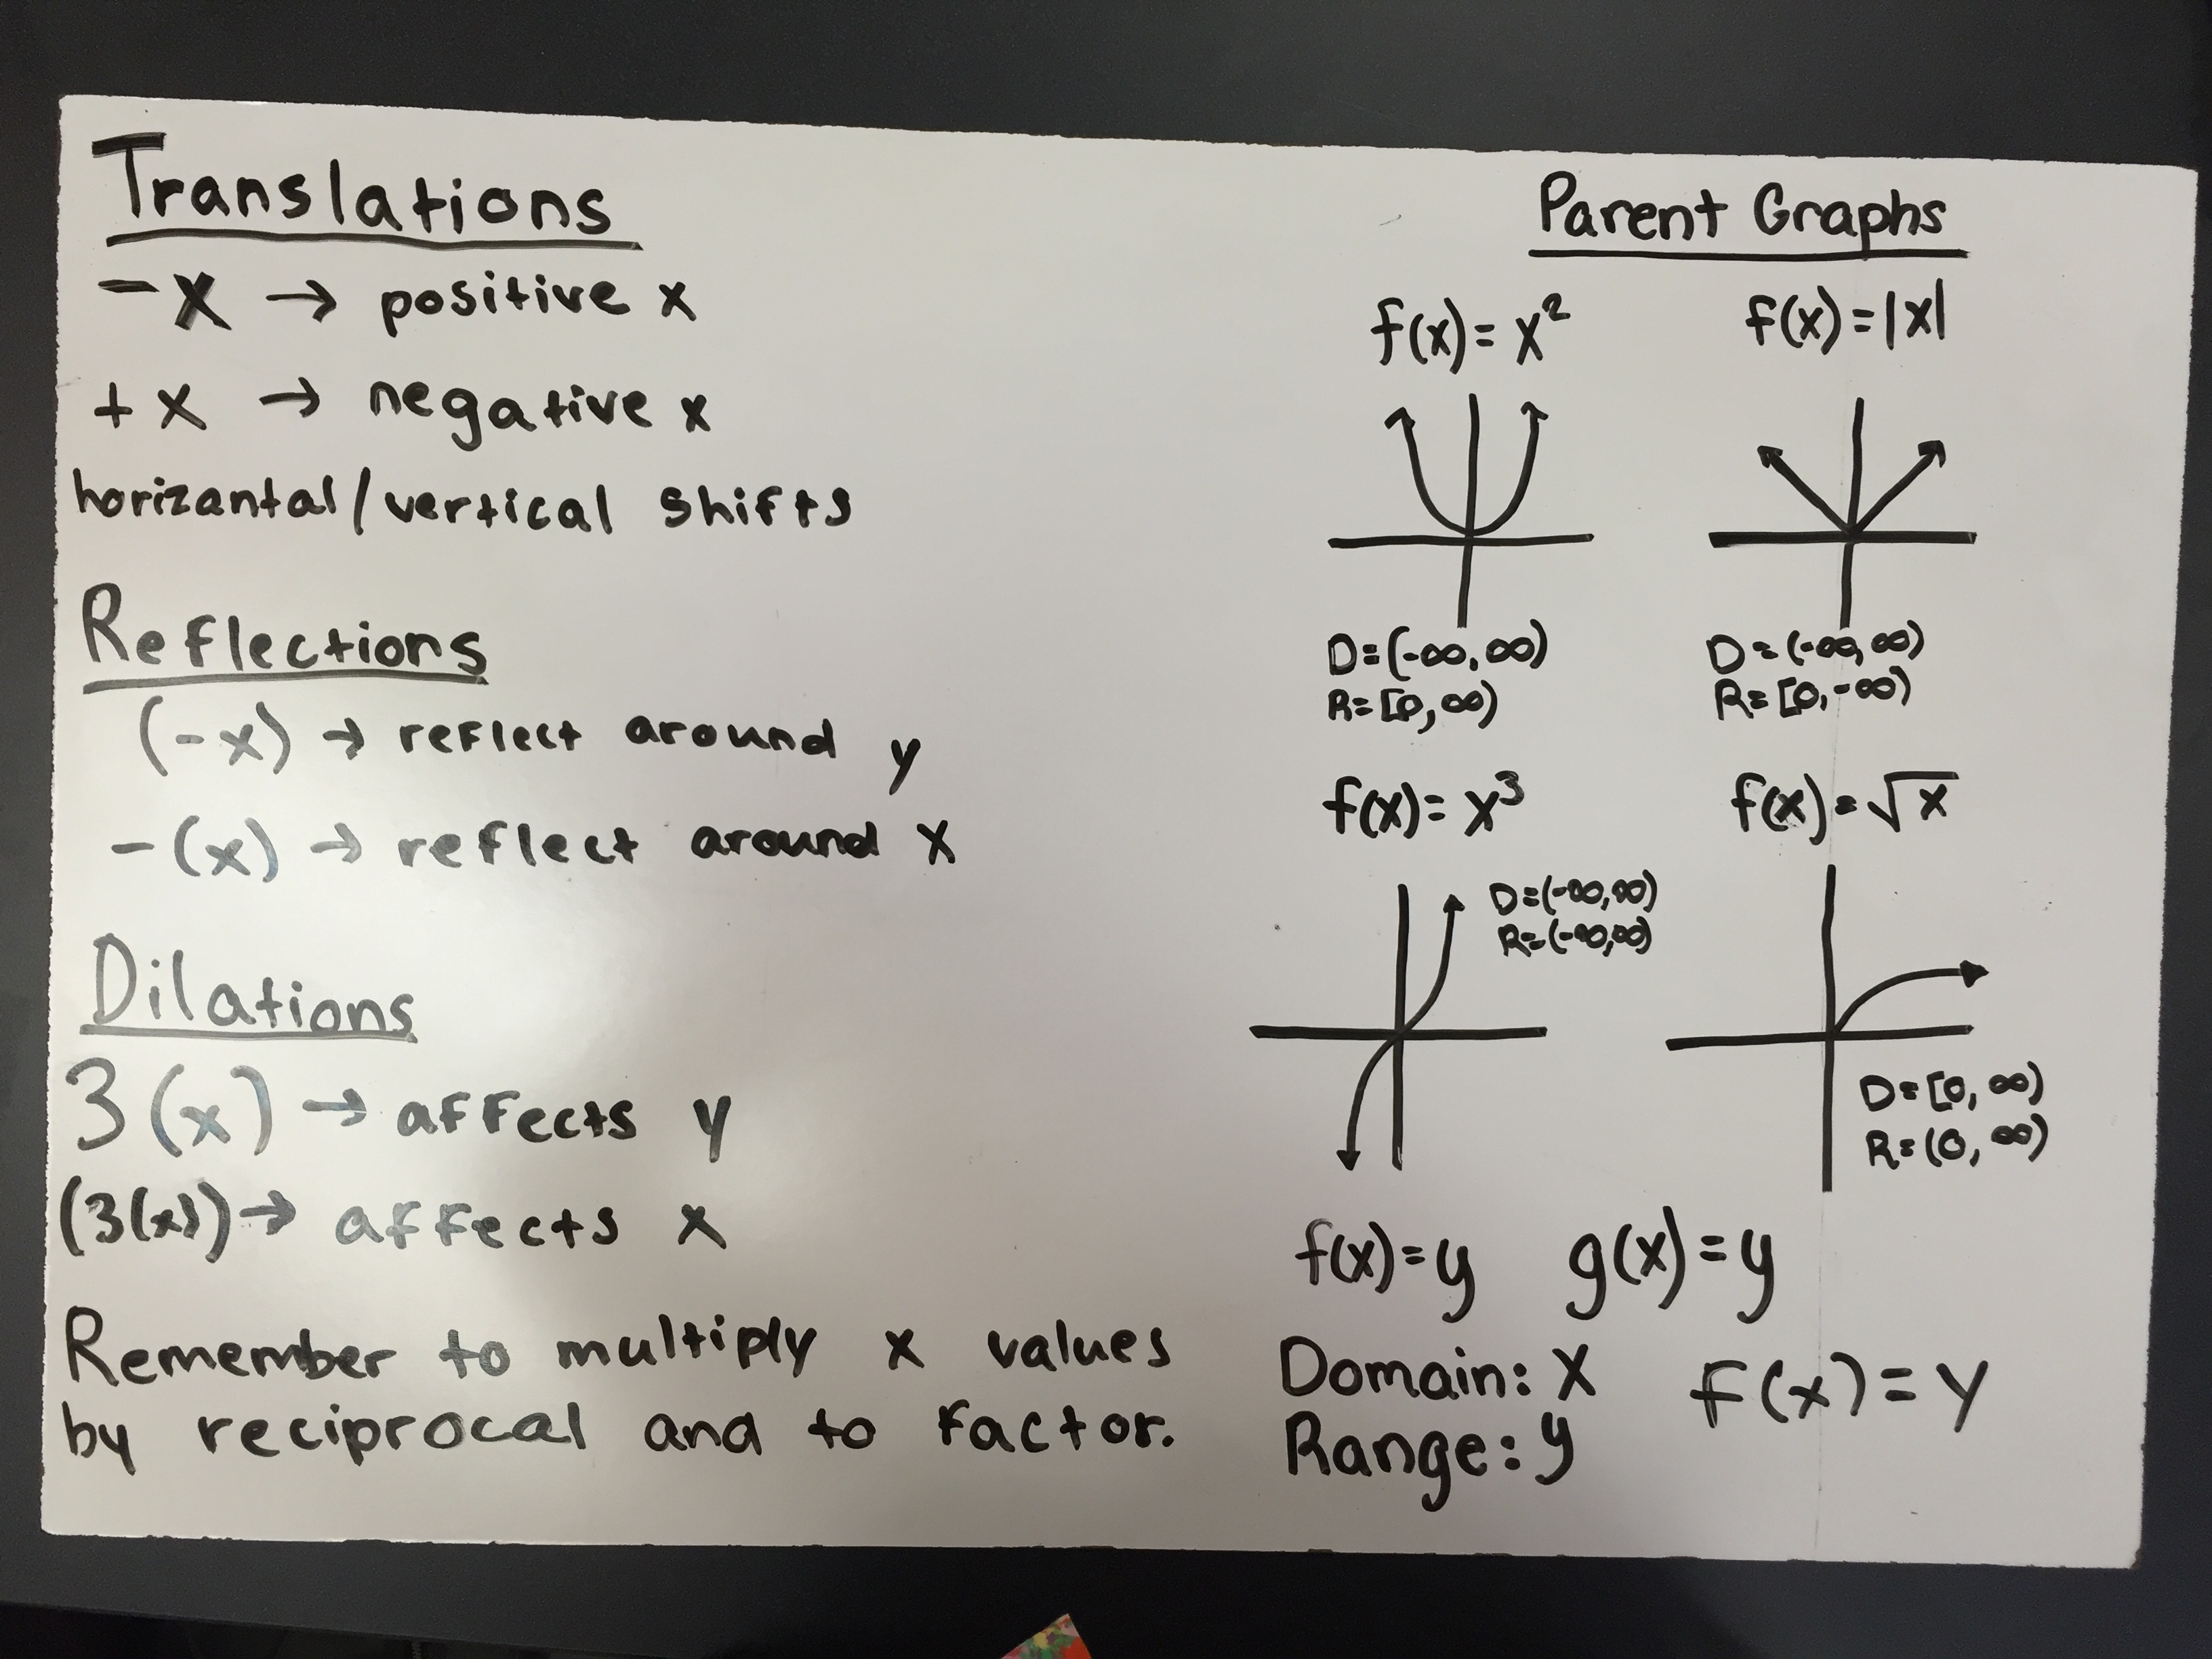 Translations
-x → positive x
+x → negative x
horizantal/vertical shifts
Reflections
(-x) → reflect around y
-(x) → reflect around x
Dilations
3(x) → affects y
(3(x)) → affects x
Remember to multiply x values
by reciprocal and to factor.
Parent Graphs
f(x)=x²
f(x)=|x|
D=(-∞,∞)
R=[0,∞)
D=(-∞,∞)
R=[0,-∞)
f(x)=x³
f(x)=√x
D=(-∞,∞)
R=(-∞,∞)
D=[0,∞)
R=(0,∞)
f(x)=y g(x)=y
Domain: x f(x)=y
Range: y